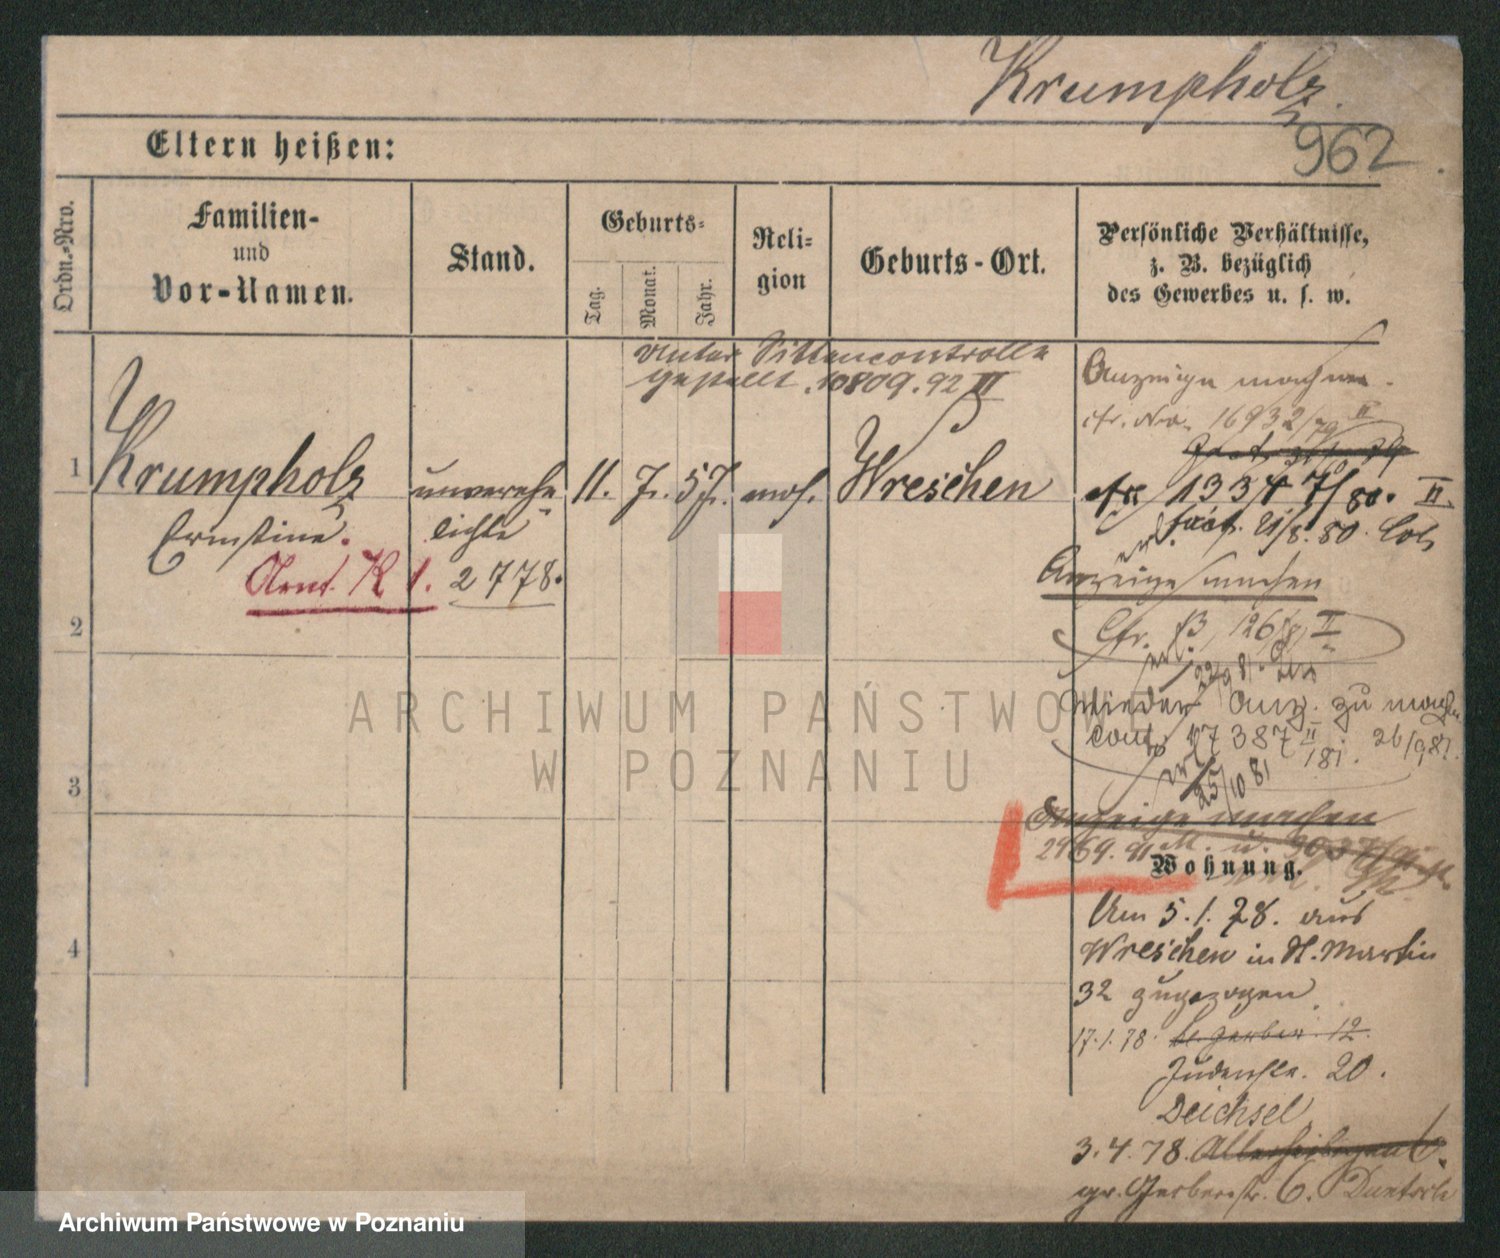 Krumpholz.
962
Eltern heißen:
Ordn.-Nro.
Familien-
und
Vor-Namen.
Stand.
Geburts-
Tag.
Monat.
Jahr.
Reli-
gion
Geburts-Ort.
Persönliche Verhältnisse,
z. B. bezüglich
des Gewerbes u. s. w.
unter Sittencontrolle
gestellt. 10809.92 II
Anzeige machen.
cfr. Nro. 16932/79 II
1
Krumpholz
unverehe-
11. 7. 57. mos. Wreschen
cfr 13347/80. II.
Ernstine.
lichte
fact. 21/8. 80.
K 1. 2778.
Anzeige machen
2
Cfr. 126/81 II
22/9 81.
wieder Anz. zu machen
cont. 17387 II 81. 26/9 81.
3
25/10 81
Anzeige machen
2969. 91
Wohnung.
Am 5.1.78. aus
4
Wreschen in St. Martin
32 zugezogen
17.1.78. kl. Gerber 12.
Judenstr. 20.
Deichsel
3.4.78. Allerheiligen 6.
gr. Gerberstr. 6.
ARCHIWUM PAŃSTWOWE
W POZNANIU
Archiwum Państwowe w Poznaniu